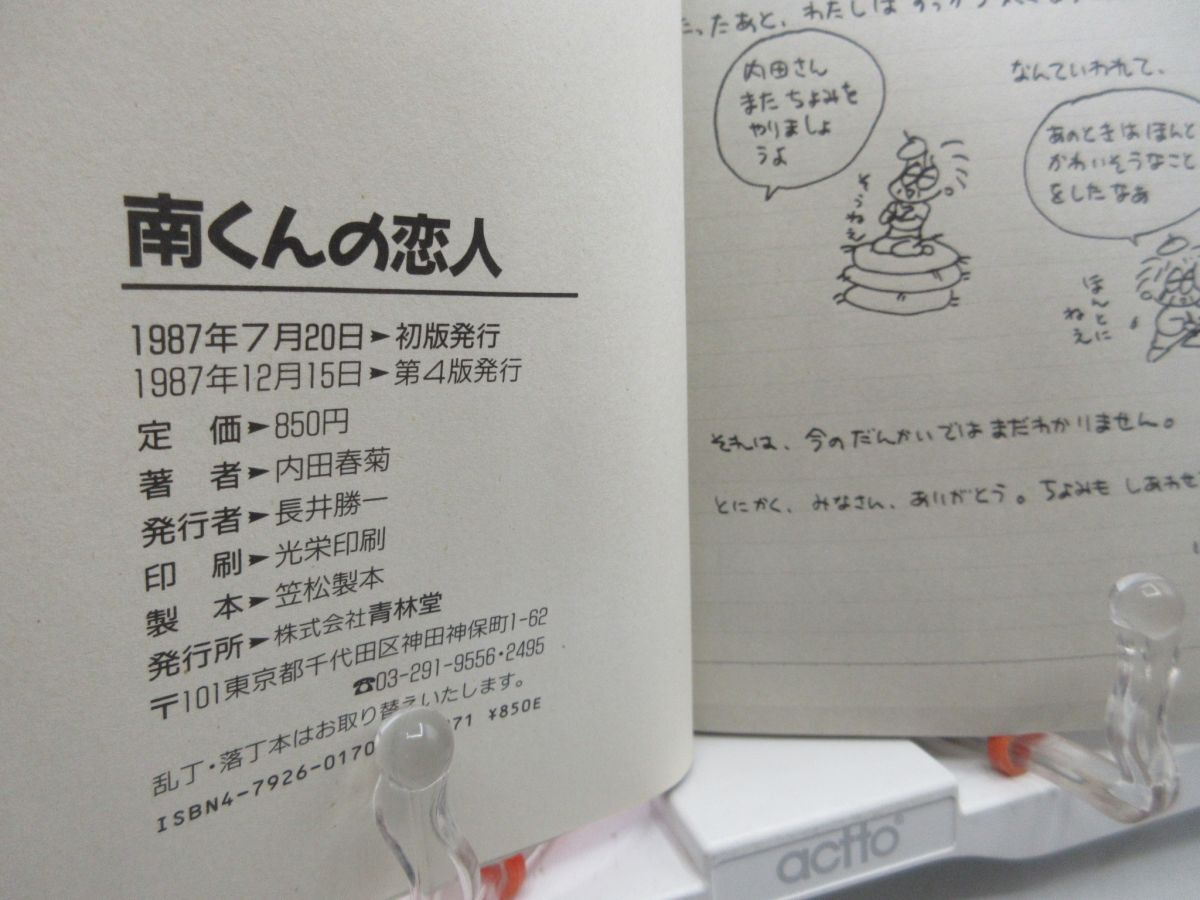 南くんの恋人
1987年7月20日➤初版発行
1987年12月15日➤第4版発行
定 価➤850円
著 者➤内田春菊
発行者➤長井勝一
印 刷➤光栄印刷
製 本➤笠松製本
発行所➤株式会社青林堂
〒101東京都千代田区神田神保町1-62
☎03-291-9556・2495
乱丁・落丁本はお取り替えいたします。
ISBN4-7926-0170 71 ¥850E
ったあと、わたしは
内田さん
またちよみを
やりましょ
うよ
そうねえ
なんていわれて、
あのときはほんと
かわいそうなこと
をしたなあ
ほんとに
ねえ
それは、今のだんかいではまだわかりません。
とにかく、みなさん、ありがとう。ちよみも しあわせ
actto